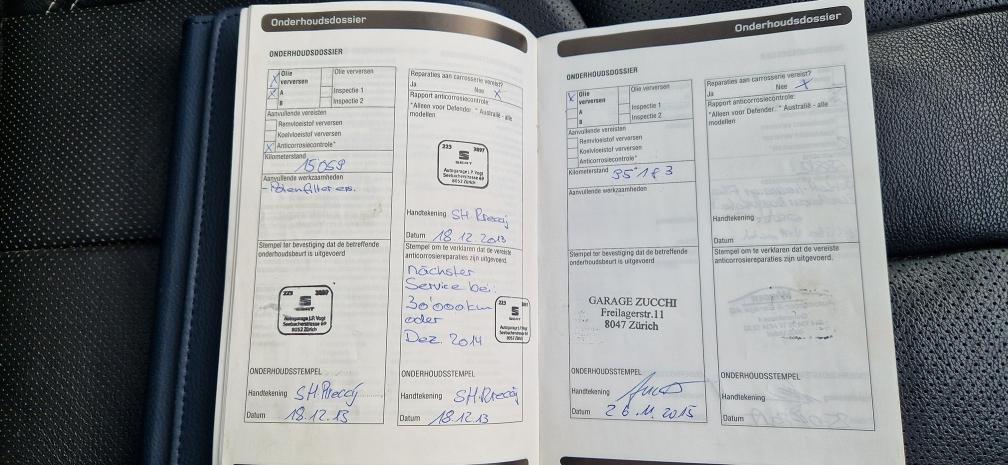 Onderhoudsdossier
ONDERHOUDSDOSSIER
Olie verversen
Olie verversen
A
Inspectie 1
B
Inspectie 2
Aanvullende vereisten
Remvloeistof verversen
Koelvloeistof verversen
Anticorrosiecontrole*
Kilometerstand
15059
Aanvullende werkzaamheden
- Pollenfilter ers.
Stempel ter bevestiging dat de betreffende
onderhoudsbeurt is uitgevoerd
223 3897
SEAT
Autogarage J.P. Vogt
Seebacherstrasse 69
8052 Zürich
ONDERHOUDSTEMPEL
Handtekening
Datum 18.12.13
Reparaties aan carrosserie vereist?
Ja Nee X
Rapport anticorrosiecontrole:
*Alleen voor Defender. * Australië - alle
modellen
223 3897
SEAT
Autogarage J.P. Vogt
Seebacherstrasse 69
8052 Zürich
Handtekening
Datum 18.12.2013
Stempel om te verklaren dat de vereiste
anticorrosiereparaties zijn uitgevoerd.
nächster
Service bei:
30'000km
oder
Dez. 2014
223
SEAT
Autogarage J.P. Vogt
Seebacherstrasse 69
8052 Zürich
ONDERHOUDSTEMPEL
Handtekening
Datum 18.12.13
Onderhoudsdossier
ONDERHOUDSDOSSIER
Olie verversen
Olie verversen
A
Inspectie 1
B
Inspectie 2
Aanvullende vereisten
Remvloeistof verversen
Koelvloeistof verversen
Anticorrosiecontrole*
Kilometerstand 35'183
Aanvullende werkzaamheden
Stempel ter bevestiging dat de betreffende
onderhoudsbeurt is uitgevoerd
GARAGE ZUCCHI
Freilagerstr.11
8047 Zürich
ONDERHOUDSTEMPEL
Handtekening
Datum 26.11.2015
Reparaties aan carrosserie vereist?
Ja Nee X
Rapport anticorrosiecontrole:
*Alleen voor Defender. * Australië - alle
modellen
Handtekening
Datum
Stempel om te verklaren dat de vereiste
anticorrosiereparaties zijn uitgevoerd.
ONDERHOUDSTEMPEL
Handtekening
Datum